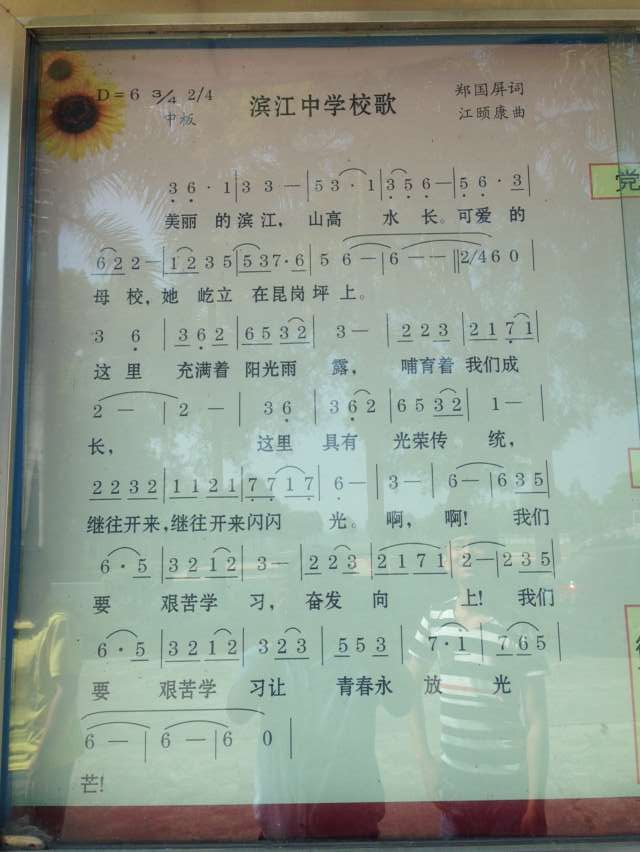 D=6 3/4 2/4 滨江中学校歌 郑国屏词
中板 江颐康曲
3 6 · 1 | 3 3 — | 5 3 · 1 | 3 5 6 — | 5 6 · 3 |
美丽 的 滨 江, 山高 水 长。可爱 的
6 2 2 — | 1 2 3 5 | 5 3 7 · 6 | 5 6 — | 6 — — ‖ 2/4 6 0 |
母 校, 她 屹立 在昆岗 坪 上。
3 6 | 3 6 2 | 6 5 3 2 | 3 — | 2 2 3 | 2 1 7 1 |
这 里 充满着 阳光雨 露, 哺育着 我们成
2 — | 2 — | 3 6 | 3 6 2 | 6 5 3 2 | 1 — |
长, 这里 具有 光荣传 统,
2 2 3 2 | 1 1 2 1 | 7 7 1 7 | 6 — | 3 — | 6 — | 6 3 5 |
继往开来,继往开来闪闪 光。啊, 啊! 我们
6 · 5 | 3 2 1 2 | 3 — | 2 2 3 | 2 1 7 1 | 2 — | 2 3 5 |
要 艰苦学 习, 奋发 向 上! 我们
6 · 5 | 3 2 1 2 | 3 2 3 | 5 5 3 | 7 · 1 | 7 6 5 |
要 艰苦学 习让 青春永 放 光
6 — | 6 — | 6 0 |
芒!
党